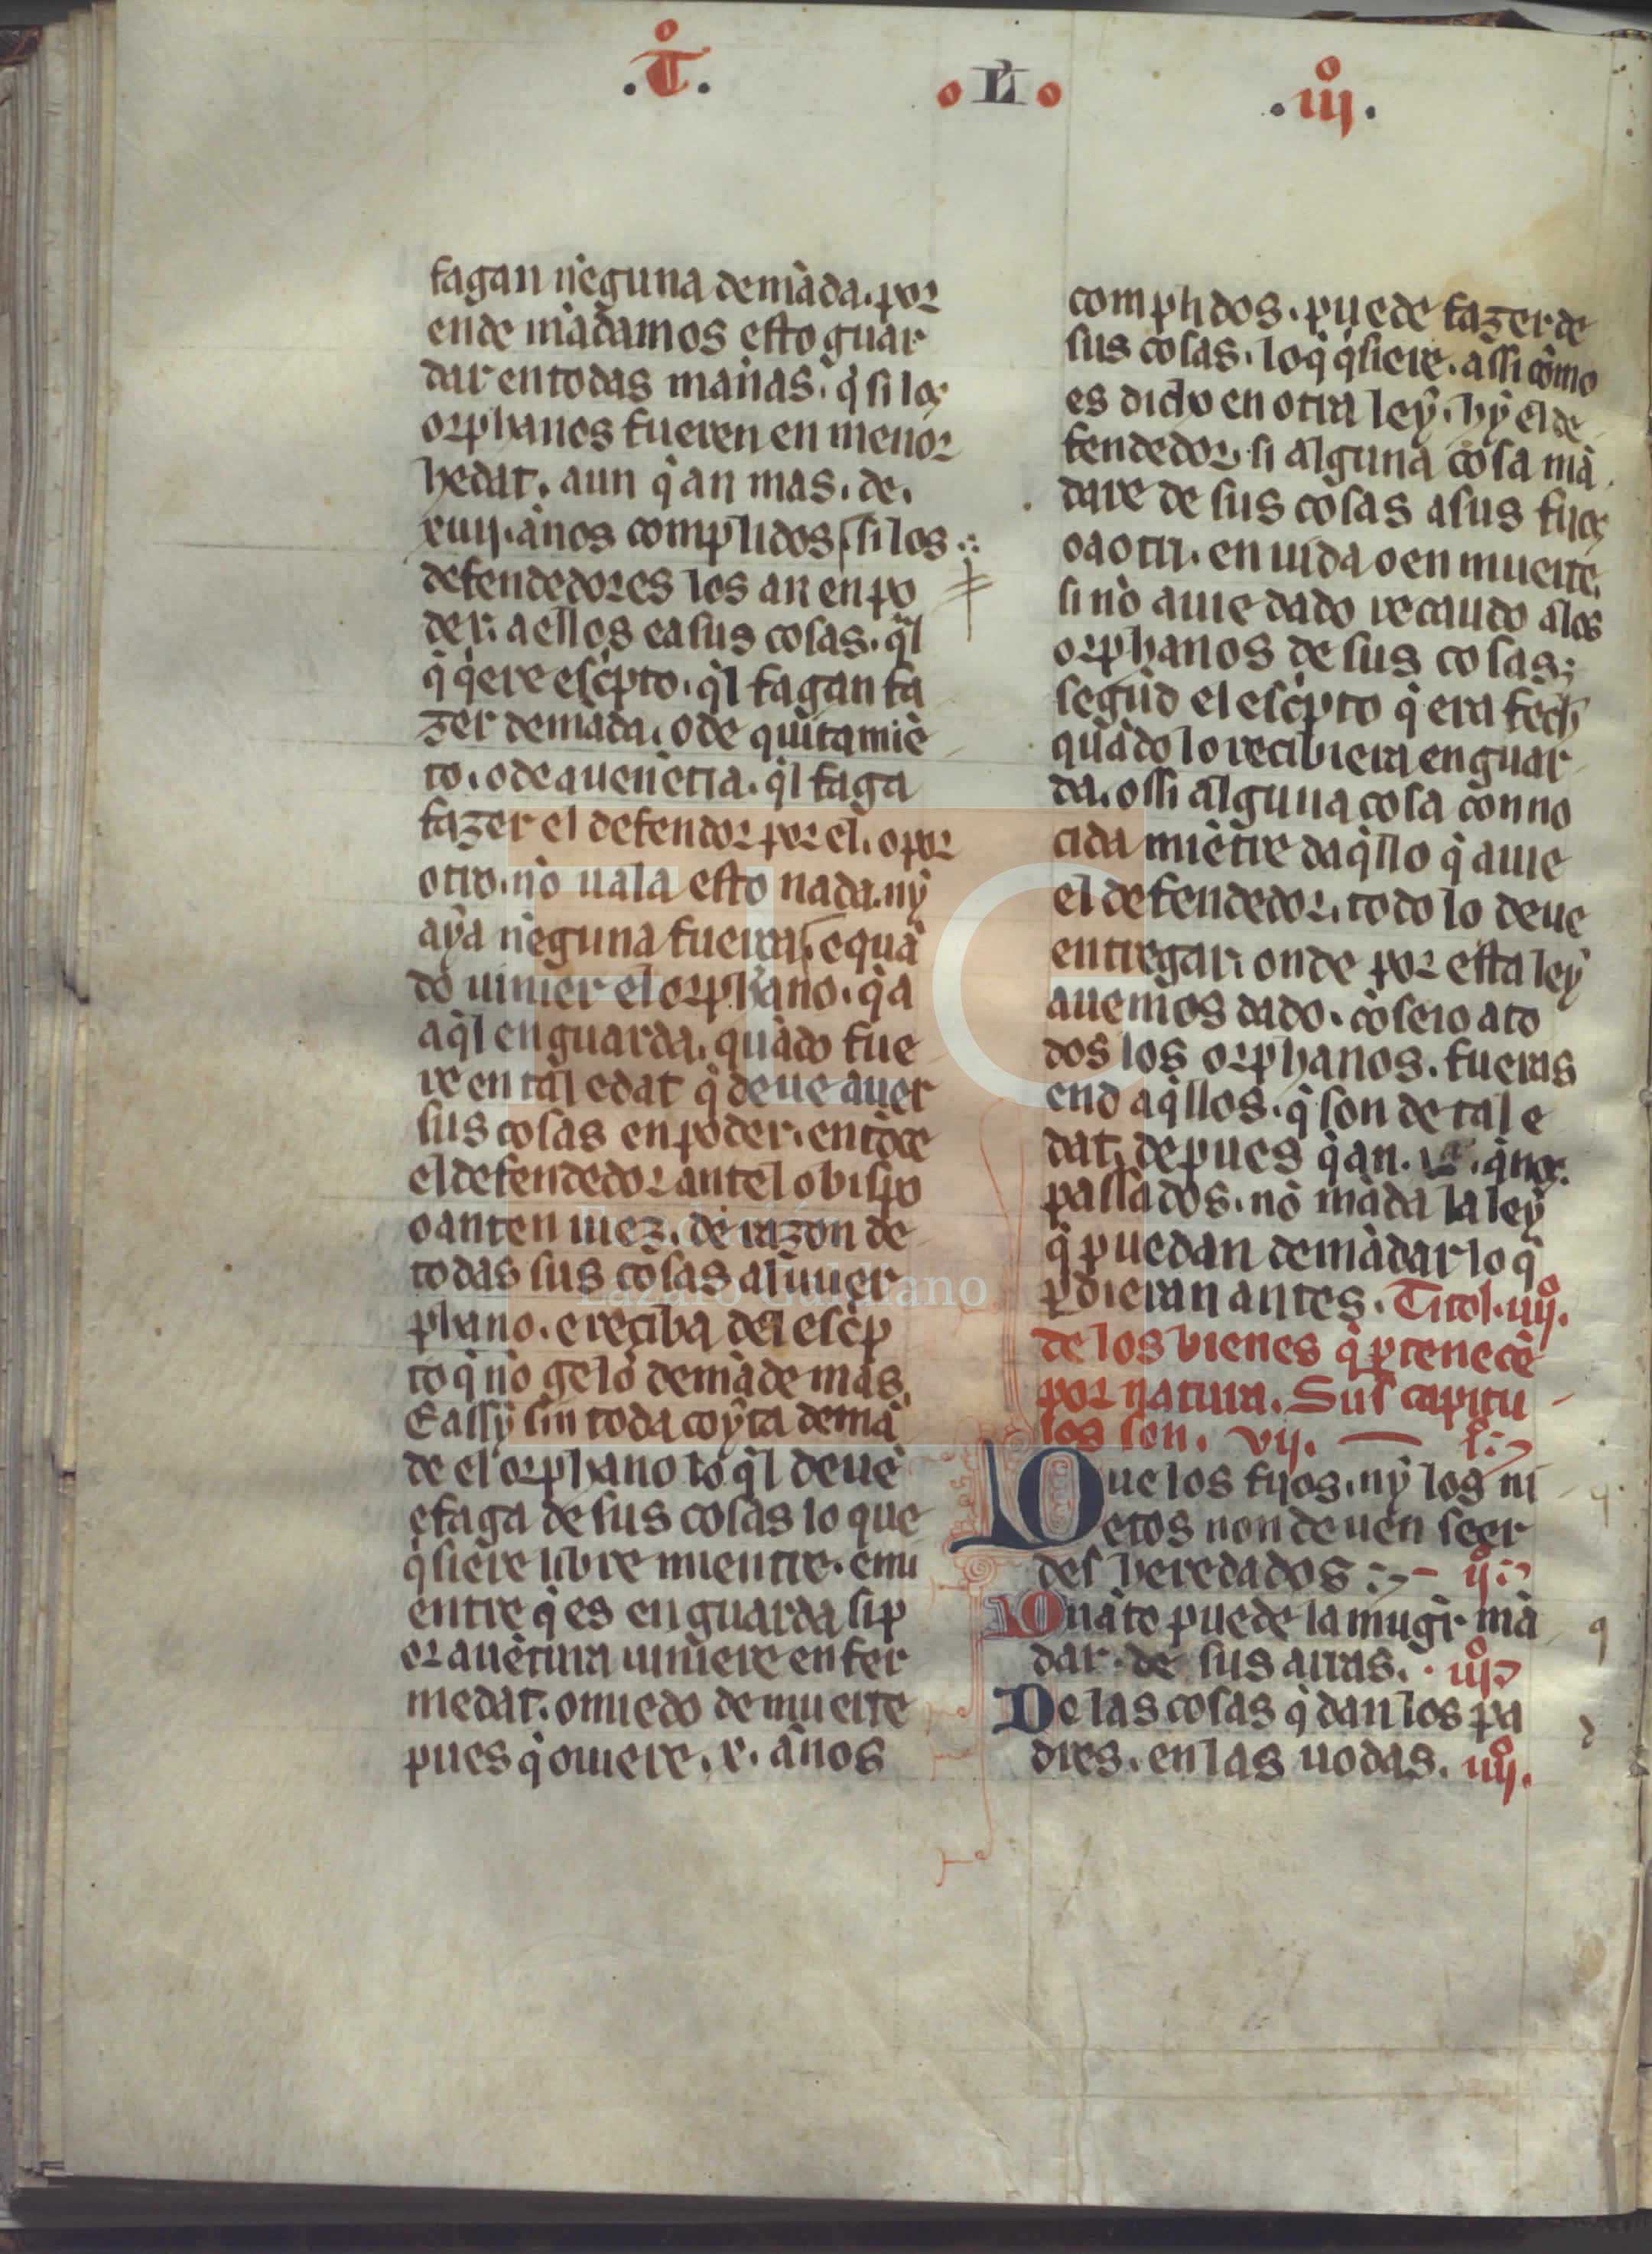 .T.
L
.iij.
fagan nẽguna demãda. por
ende mãdamos esto guar
dar en todas mañas. q̃ si los
orphanos fueren en menor
hedat. aun q̃ an mas. de.
xiiij. ãnos complidos, si los
defendedores los an en po
der. a ellos e a sus cosas. q̃l
q̃ q̃ere esc̃pto. q̃l fagan fa
zer demãda. o de quitamiẽ
to. o de auenẽcia. q̃l faga
fazer el defendor por el. o por
otro. nõ uala esto nada. nỹ
aỹa nẽguna fuerça, e quã
do uinier el orphano. q̃ a
aq̃l en guarda. quãdo fue
re en tal edat q̃ deue auer
sus cosas en poder. entõce
el defendedor antel obispo
o anten iuez. dé razon de
todas sus cosas al uuer
phano. e reciba del esc̃p
to q̃ nõ gelo demãde mas.
E assỹ sin toda coỹta demã
de el orphano lo q̃l deue
e faga de sus cosas lo que
q̃siere libre mientre. e mi
entre q̃ es en guarda si p̃
or auẽtura uiniere enfer
medat. o miedo de muerte
pues q̃ ouiere. x. ãnos
complidos. puede fazer de
sus cosas. lo q̃ q̃siere. assi cõmo
es dicho en otra leỹ. hỹ el de
fendedor. si alguna cosa mã
dare de sus cosas a sus fijos
o a otri. en uida o en muerte.
si nõ auie dado recaudo a los
orphanos de sus cosas;
segũd el esc̃pto q̃ era fech
quãdo lo recibiera en guar
da. o ssi alguna cosa conno
cida miẽtre daq̃llo q̃ auie
el defendedor. todo lo deue
entregar. onde por esta leỹ
auemos dado. cõseio a to
dos los orphanos. fueras
end aq̃llos. q̃ son de tal e
dat. depues q̃ an. ãnos.
passados. nõ mãda la leỹ
q̃ puedan demãdar lo q̃
p̃dieran antes. Titol. iiij.
de los bienes q̃ p̃tenecẽ
por natura. Sus capitu
los son. vij. — j.
Que los fijos. nỹ los ni
etos non deuen seer
des heredados :~ ij.
Quãto puede la mug̃r mã
dar. de sus arras. . iij.
De las cosas q̃ dan los pa
dres. en las uodas. iiij.
Lázaro Galdiano